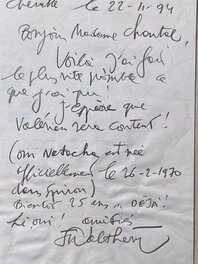 le 22-11-94
Bonjour Madame Chantal,
Voilà j'ai fait
le plus vite possible ce
que j'ai pu!
J'espère que
Valérian sera content!
(oui Natacha est née
officiellement le 26-2-1970
dans Spirou)
Bientôt 25 ans DÉJÀ!
Hé, oui! amitiés